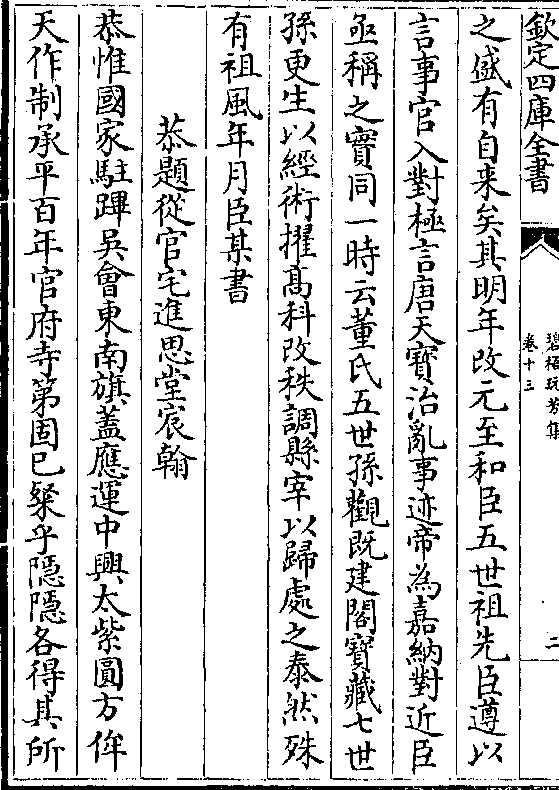 欽定四庫全書
碧梧玩芳集
卷十三
二
之盛有自来矣其明年改元至和臣五世祖先臣遵以
言事官入對極言唐天寶治亂事迹帝為嘉納對近臣
亟稱之實同一時云董氏五世孫觀既建閣寶藏七世
孫更生以經術擢髙科改秩調縣宰以歸處之泰然殊
有祖風年月臣某書
恭題從官宅進思堂宸翰
恭惟國家駐蹕吳會東南旗蓋應運中興太紫圓方侔
天作制承平百年官府寺第固已粲乎隠隠各得其所